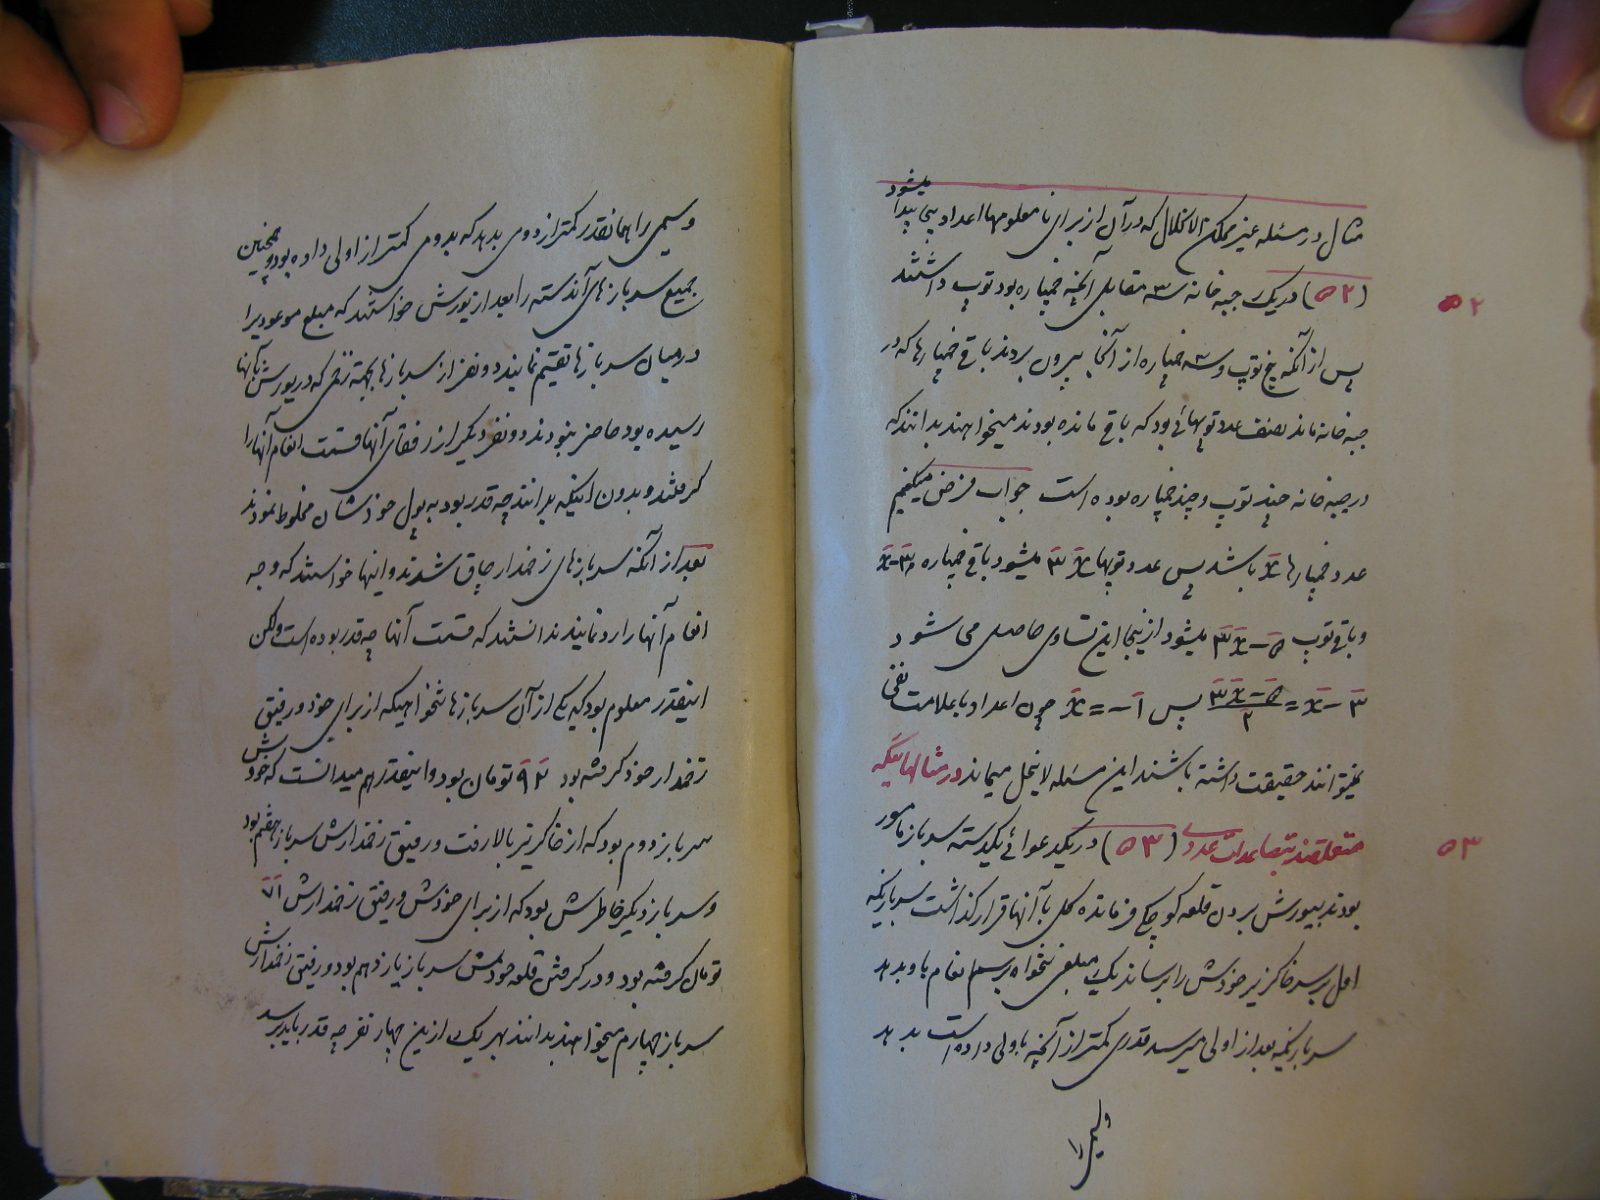 مثال در مسئله غیر ممکن الانحلال که در آن از برای نا معلومها اعداد بیجا پیدا میشود
(۵۲) در یک جبه خانه سه مقابل آنچه خمپاره بود توپ داشتند
۵۲
پس از آنکه پنج توپ و سه خمپاره از آنجا بیرون بردند باقی خمپارها که در
جبه خانه ماند نصف عدد توپهائی بود که باقی مانده بودند میخواهند بدانند که
در جبه خانه چند توپ و چند خمپاره بوده است جواب فرض میکنیم
عدد خمپارها x باشد پس عدد توپها ۳x میشود باقی خمپاره x−۳
و باقی توپ ۳x−۵ میشود از اینجا این تساوی حاصل می شود
x−۳ = (۳x−۵)/۲ پس x = −۱ چون اعداد با علامت نفی
نمیتوانند حقیقت داشته باشند این مسئله لاینحل میماند در مثالهائیکه
متعلقند بتصاعدات عددی (۵۳) در یکدعوائی یکدسته سرباز مامور
۵۳
بودند بیورش بردن قلعه کوچکی فرمانده کل با آنها قرار گذاشت سربازیکه
اول بر سر خاکریز خودش را برساند یک مبلغی تنخواه برسم انعام باو بدهد
سربازیکه بعد از اولی میرسد قدری کمتر از آنچه باولی داده است بدهد
و سیمی را
و سیمی را همانقدر کمتر از دومی بدهد که بدومی کمتر از اولی داده بود و همچنین
جمیع سربازهای آندسته را بعد از یورش خواستند که مبلغ موعود را
در میان سربازها تقسیم نمایند دو نفر از سربازها بجهته زخمی که در یورش بآنها
رسیده بود حاضر نبودند دو نفر دیگر از رفقای آنها قسمت انعام آنها را
گرفتند و بدون اینکه بدانند چه قدر بود به پول خودشان مخلوط نمودند
بعد از آنکه سربازهای زخمدار چاق شدند و اینها خواستند که وجه
انعام آنها را رد نمایند ندانستند که قسمت آنها چه قدر بوده است ولکن
اینقدر معلوم بود که یکی از آن سربازها تنخواهیکه از برای خود و رفیق
زخمدار خود گرفته بود ۹۲ تومان بود و اینقدر هم میدانست که خودش
سرباز دوم بود که از خاکریز بالا رفت و رفیق زخمدارش سرباز هفتم بود
و سرباز دیگر خاطرش بود که از برای خودش و رفیق زخمدارش ۷۱
تومان گرفته بود و در گرفتن قلعه خودش سرباز یازدهم بود و رفیق زخمدارش
سرباز چهارم میخواهند بدانند بهر یک ازین چهار نفر چه قدر باید برسد